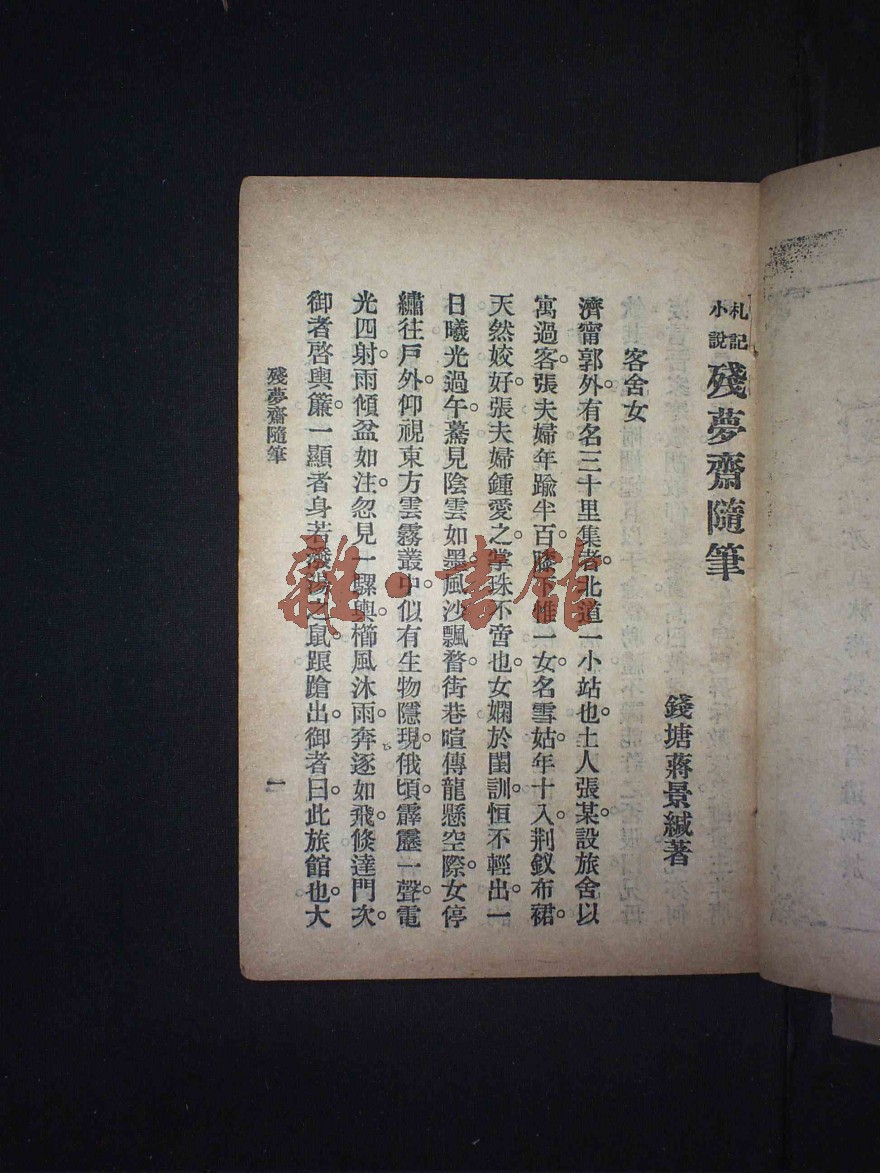 札記小說 殘夢齋隨筆
錢塘蔣景緘著
客舍女
濟甯郭外有名三十里集者。北道一小站也。土人張某設旅舍以
寓過客。張夫婦年踰半百。膝下惟一女名雪姑。年十八。荆釵布裙。
天然姣好。張夫婦鍾愛之。掌珠不啻也。女嫻於閨訓。恒不輕出。一
日曦光過午。驀見陰雲如墨。風沙飄瞀。街巷喧傳龍懸空際。女停
繡往戶外。仰視東方雲霧叢中。似有生物隱現。俄頃霹靂一聲。電
光四射。雨傾盆如注。忽見一騾輿櫛風沐雨。奔逐如飛。倏達門次。
御者啓輿簾。一顯者身若潑湯之鼠。踉蹌出。御者曰。此旅館也。大
殘夢齋隨筆
一
雜·書館